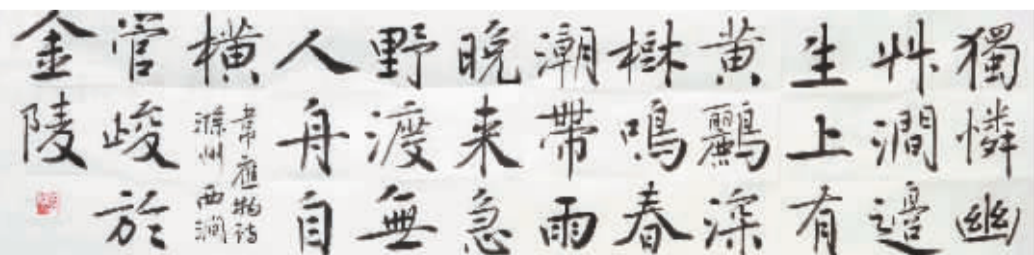 獨憐幽
艸澗邊
生上有
黄鸝深
樹鳴春
潮帶雨
晚来急
野渡無
人舟自
横
韋應物詩
滁州西澗
管峻於
金陵